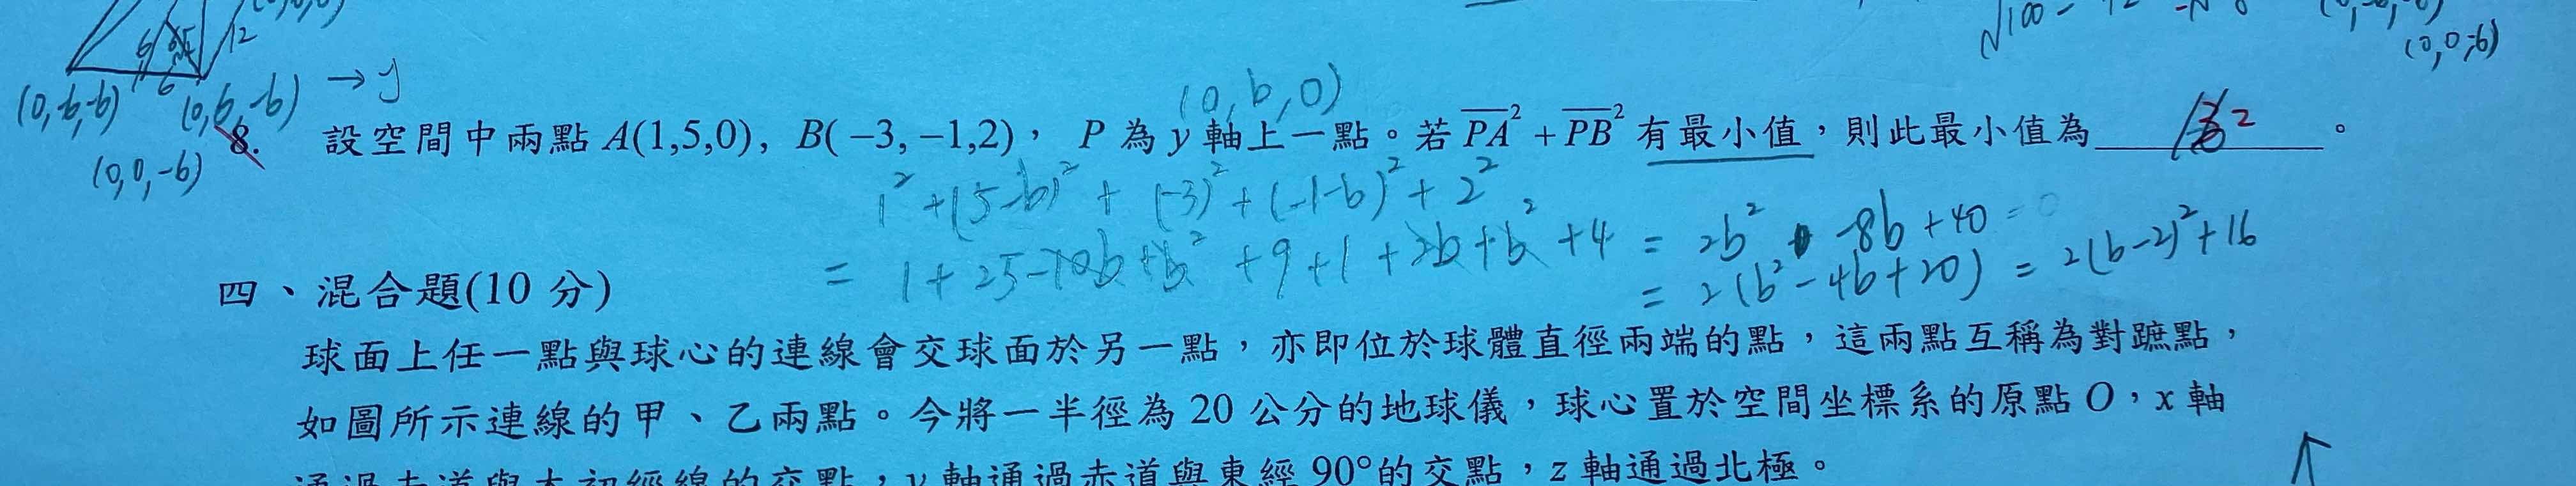 12
√100 -
(0,0,-6)
6
→y
(0,6,-6)
(0,-6,-6)
(0,b,0)
8. 設空間中兩點 A(1,5,0), B(-3,-1,2), P 為 y 軸上一點。若 PA² + PB² 有最小值,則此最小值為 32 。
(0,0,-6)
1² + (5-b)² + (-3)² + (-1-b)² + 2²
= 1 + 25 - 10b + b² + 9 + 1 + 2b + b² + 4 = 2b² - 8b + 40 = 0
= 2(b² - 4b + 20) = 2(b-2)² + 16
四、混合題(10 分)
球面上任一點與球心的連線會交球面於另一點,亦即位於球體直徑兩端的點,這兩點互稱為對蹠點,
如圖所示連線的甲、乙兩點。今將一半徑為 20 公分的地球儀,球心置於空間坐標系的原點 O,x 軸
通過赤道與本初經線的交點,y 軸通過赤道與東經 90°的交點,z 軸通過北極。